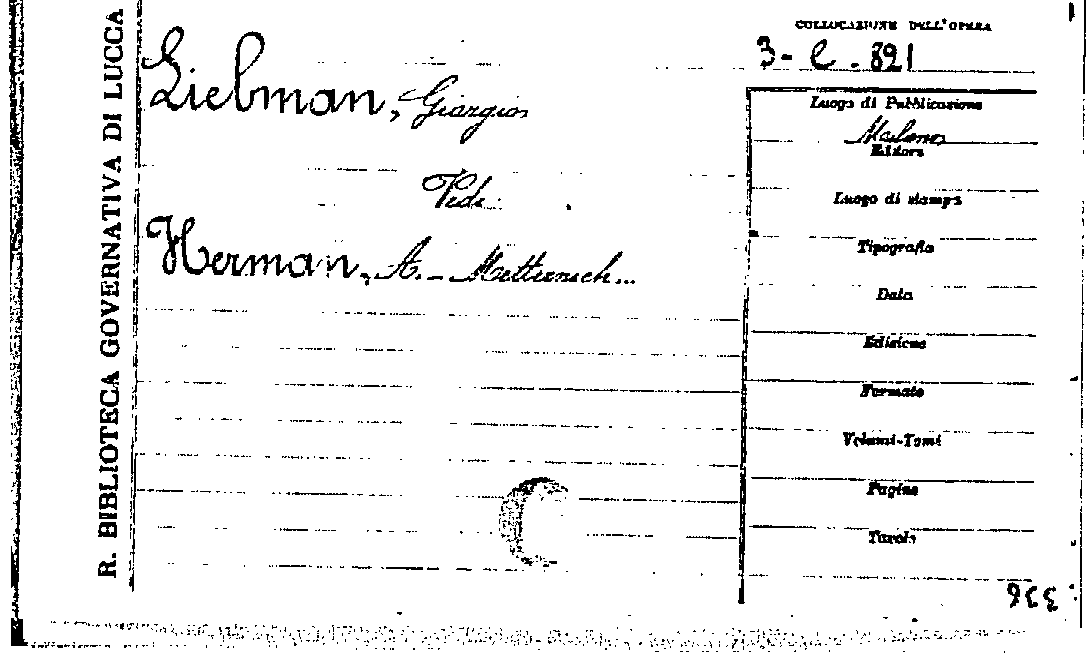 R. BIBLIOTECA GOVERNATIVA DI LUCCA
COLLOCAZIONE DELL'OPERA
3- C - 821
Liebman, Giorgio
Vedi
Herman, A. - Metternich...
Luogo di Pubblicazione
Milano
Editore
Luogo di stampa
Tipografia
Data
Edizione
Formato
Volumi-Tomi
Pagine
Tavole
336